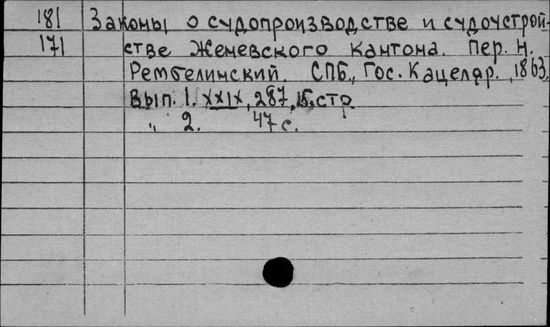 181 Законы о судопроизводстве и судоустрой-
171 стве Женевского Кантона. Пер. Н.
Рембелинский. СПБ., Гос. Кацеляр., 1863.
Вып. 1. XXIX, 287, 15, стр.
„ 2. 47 с.